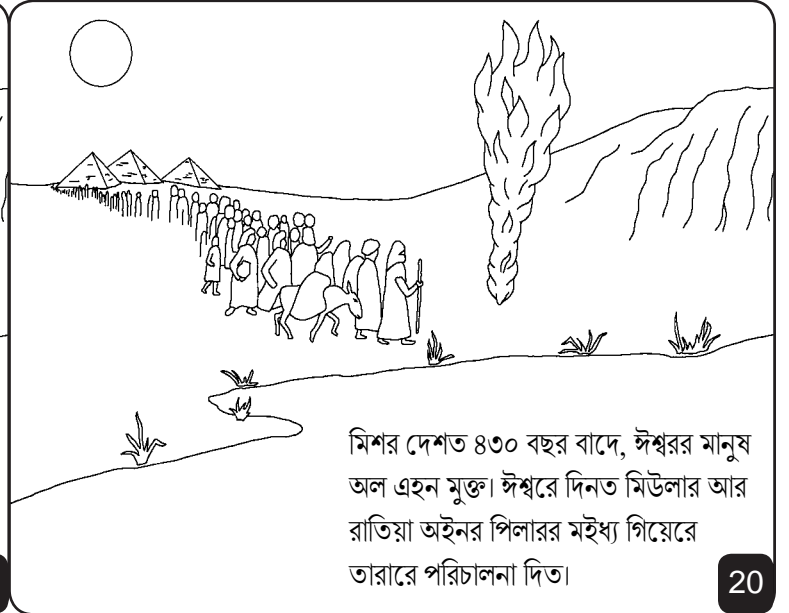 মিশর দেশত ৪৩০ বছর বাদে, ঈশ্বরর মানুষ
অল এহন মুক্ত। ঈশ্বরে দিনত মিউলার আর
রাতিয়া অইনর পিলারর মইধ্য গিয়েরে
তারারে পরিচালনা দিত।
20